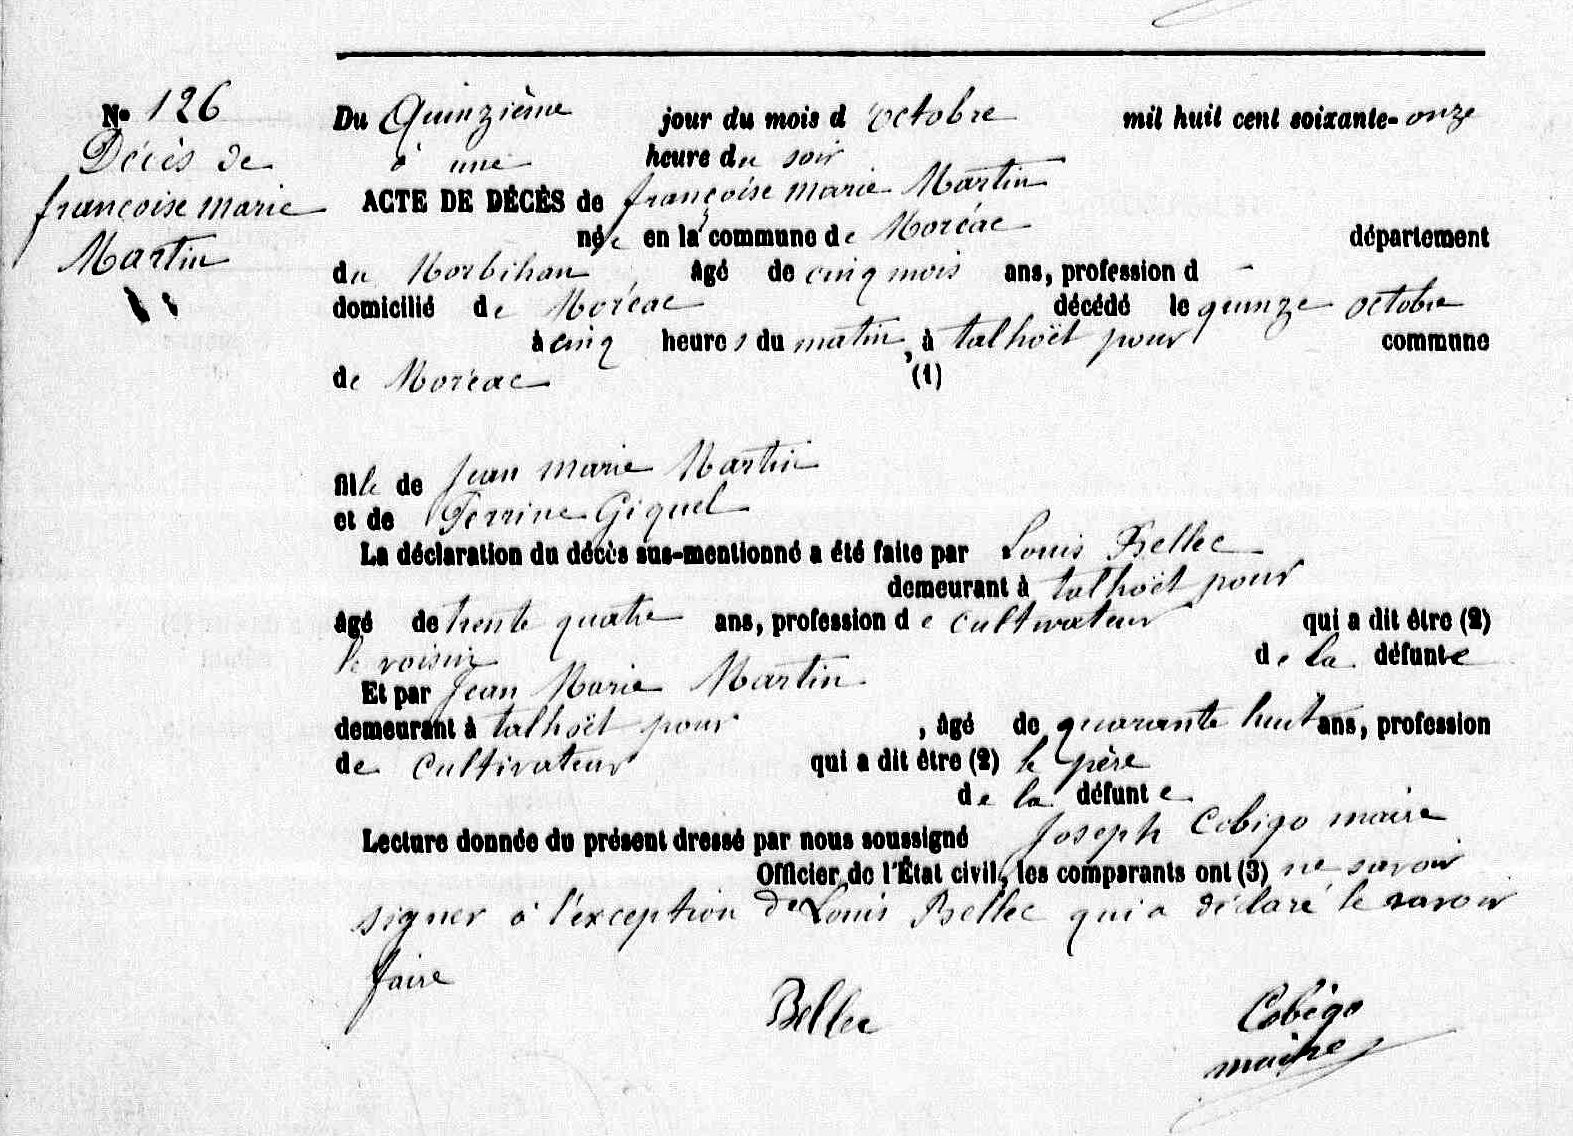 No 126
Décès de
françoise marie
Martin
Du Quinzième jour du mois d'octobre mil huit cent soixante-onze
à une heure du soir
ACTE DE DÉCÈS de françoise marie Martin
née en la commune de Moréac département
du Morbihan âgé de cinq mois ans, profession d -
domicilié de Moréac décédé le quinze octobre
à cinq heures du matin, à talhoët pour commune
de Moréac (1)
fille de Jean marie Martin
et de Perrine Giquel
La déclaration du décès sus-mentionné a été faite par Louis Bellec
demeurant à talhoët pour
âgé de trente quatre ans, profession de cultivateur qui a dit être (2)
le voisin de la défunte
Et par Jean Marie Martin
demeurant à talhoët pour, âgé de quarante huit ans, profession
de cultivateur qui a dit être (2) le père
de la défunte
Lecture donnée du présent dressé par nous soussigné Joseph Cobigo maire
Officier de l'État civil, les comparants ont (3) ne savoir
signer à l'exception de Louis Bellec qui a déclaré le savoir
faire
Bellec Cobigo
maire